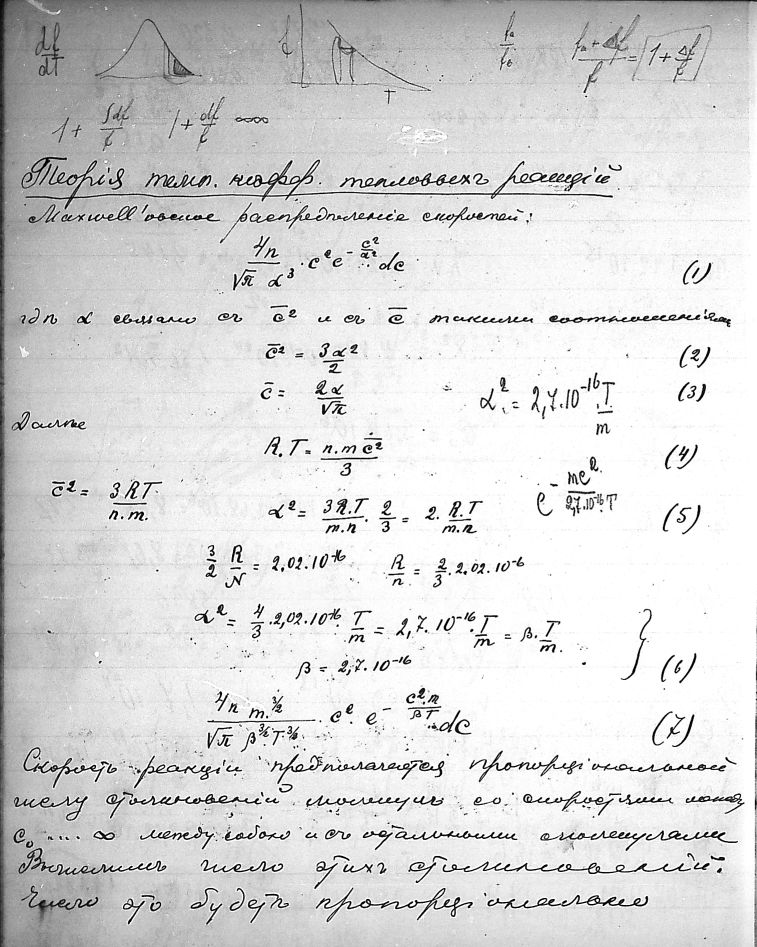 df/dT
f
T
f_a/f_b
(f_a + Δf)/f = 1 + Δf/f
1 + ∫df/f   1 + df/f ∞∞
Теорія темп. коэфф. тепловыхъ реакцій
Maxwell'овское распредѣленіе скоростей:
4n/(√π α³) · c² e^(-c²/α²) dc (1)
гдѣ α связано съ c̄² и съ c̄ такими соотношеніями
c̄² = 3α²/2 (2)
c̄ = 2α/√π (3)
α² = 2,7·10⁻¹⁶ T/m
Далѣе
R.T = n.m c̄²/3 (4)
c̄² = 3RT/n.m.
α² = 3R.T/m.n · 2/3 = 2. R.T/m.n (5)
e^(-mc²/2,7·10⁻¹⁶T)
3/2 R/N = 2,02.10⁻¹⁶   R/n = 2/3 · 2,02.10⁻⁶
α² = 4/3 · 2,02.10⁻¹⁶ · T/m = 2,7.10⁻¹⁶ · T/m = β · T/m.
β = 2,7·10⁻¹⁶ } (6)
4n m^(3/2)/(√π β^(3/2) T^(3/2)) · c² e^(-c².m/βT) dc (7)
Скорость реакціи предполагается пропорціональной
числу столкновеній молекулъ со скоростями между
c₀ .... ∞ между собою и съ остальными молекулами
Вычислимъ число этихъ столкновеній.
Число это будетъ пропорціонально